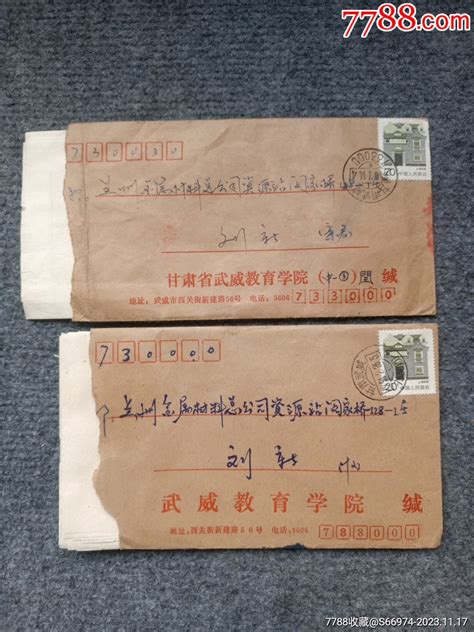 7788.com
730030
兰州金属材料总公司资源站阎家桥128-1号
刘新
甘肃省武威教育学院(中国) 缄
地址:武威市西关街新建路56号 电话:3606
733000
20
中国人民邮政
730000
兰州金属材料总公司资源站阎家桥128-1号
刘新 收
武威教育学院 缄
地址:西关街新建路56号 电话:3606
733000
20
中国人民邮政
7788收藏@S66974-2023.11.17